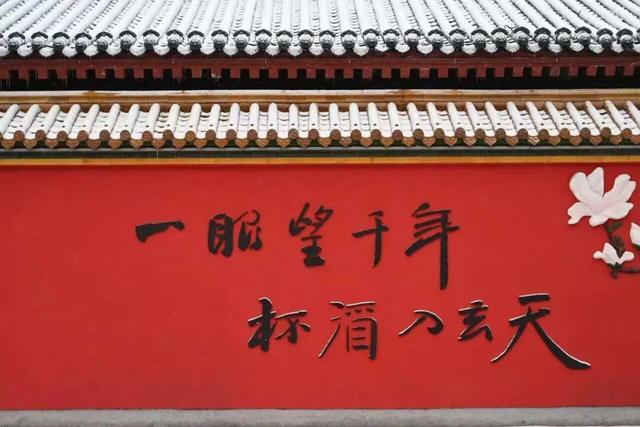 一眼望千年
杯酒入玄天